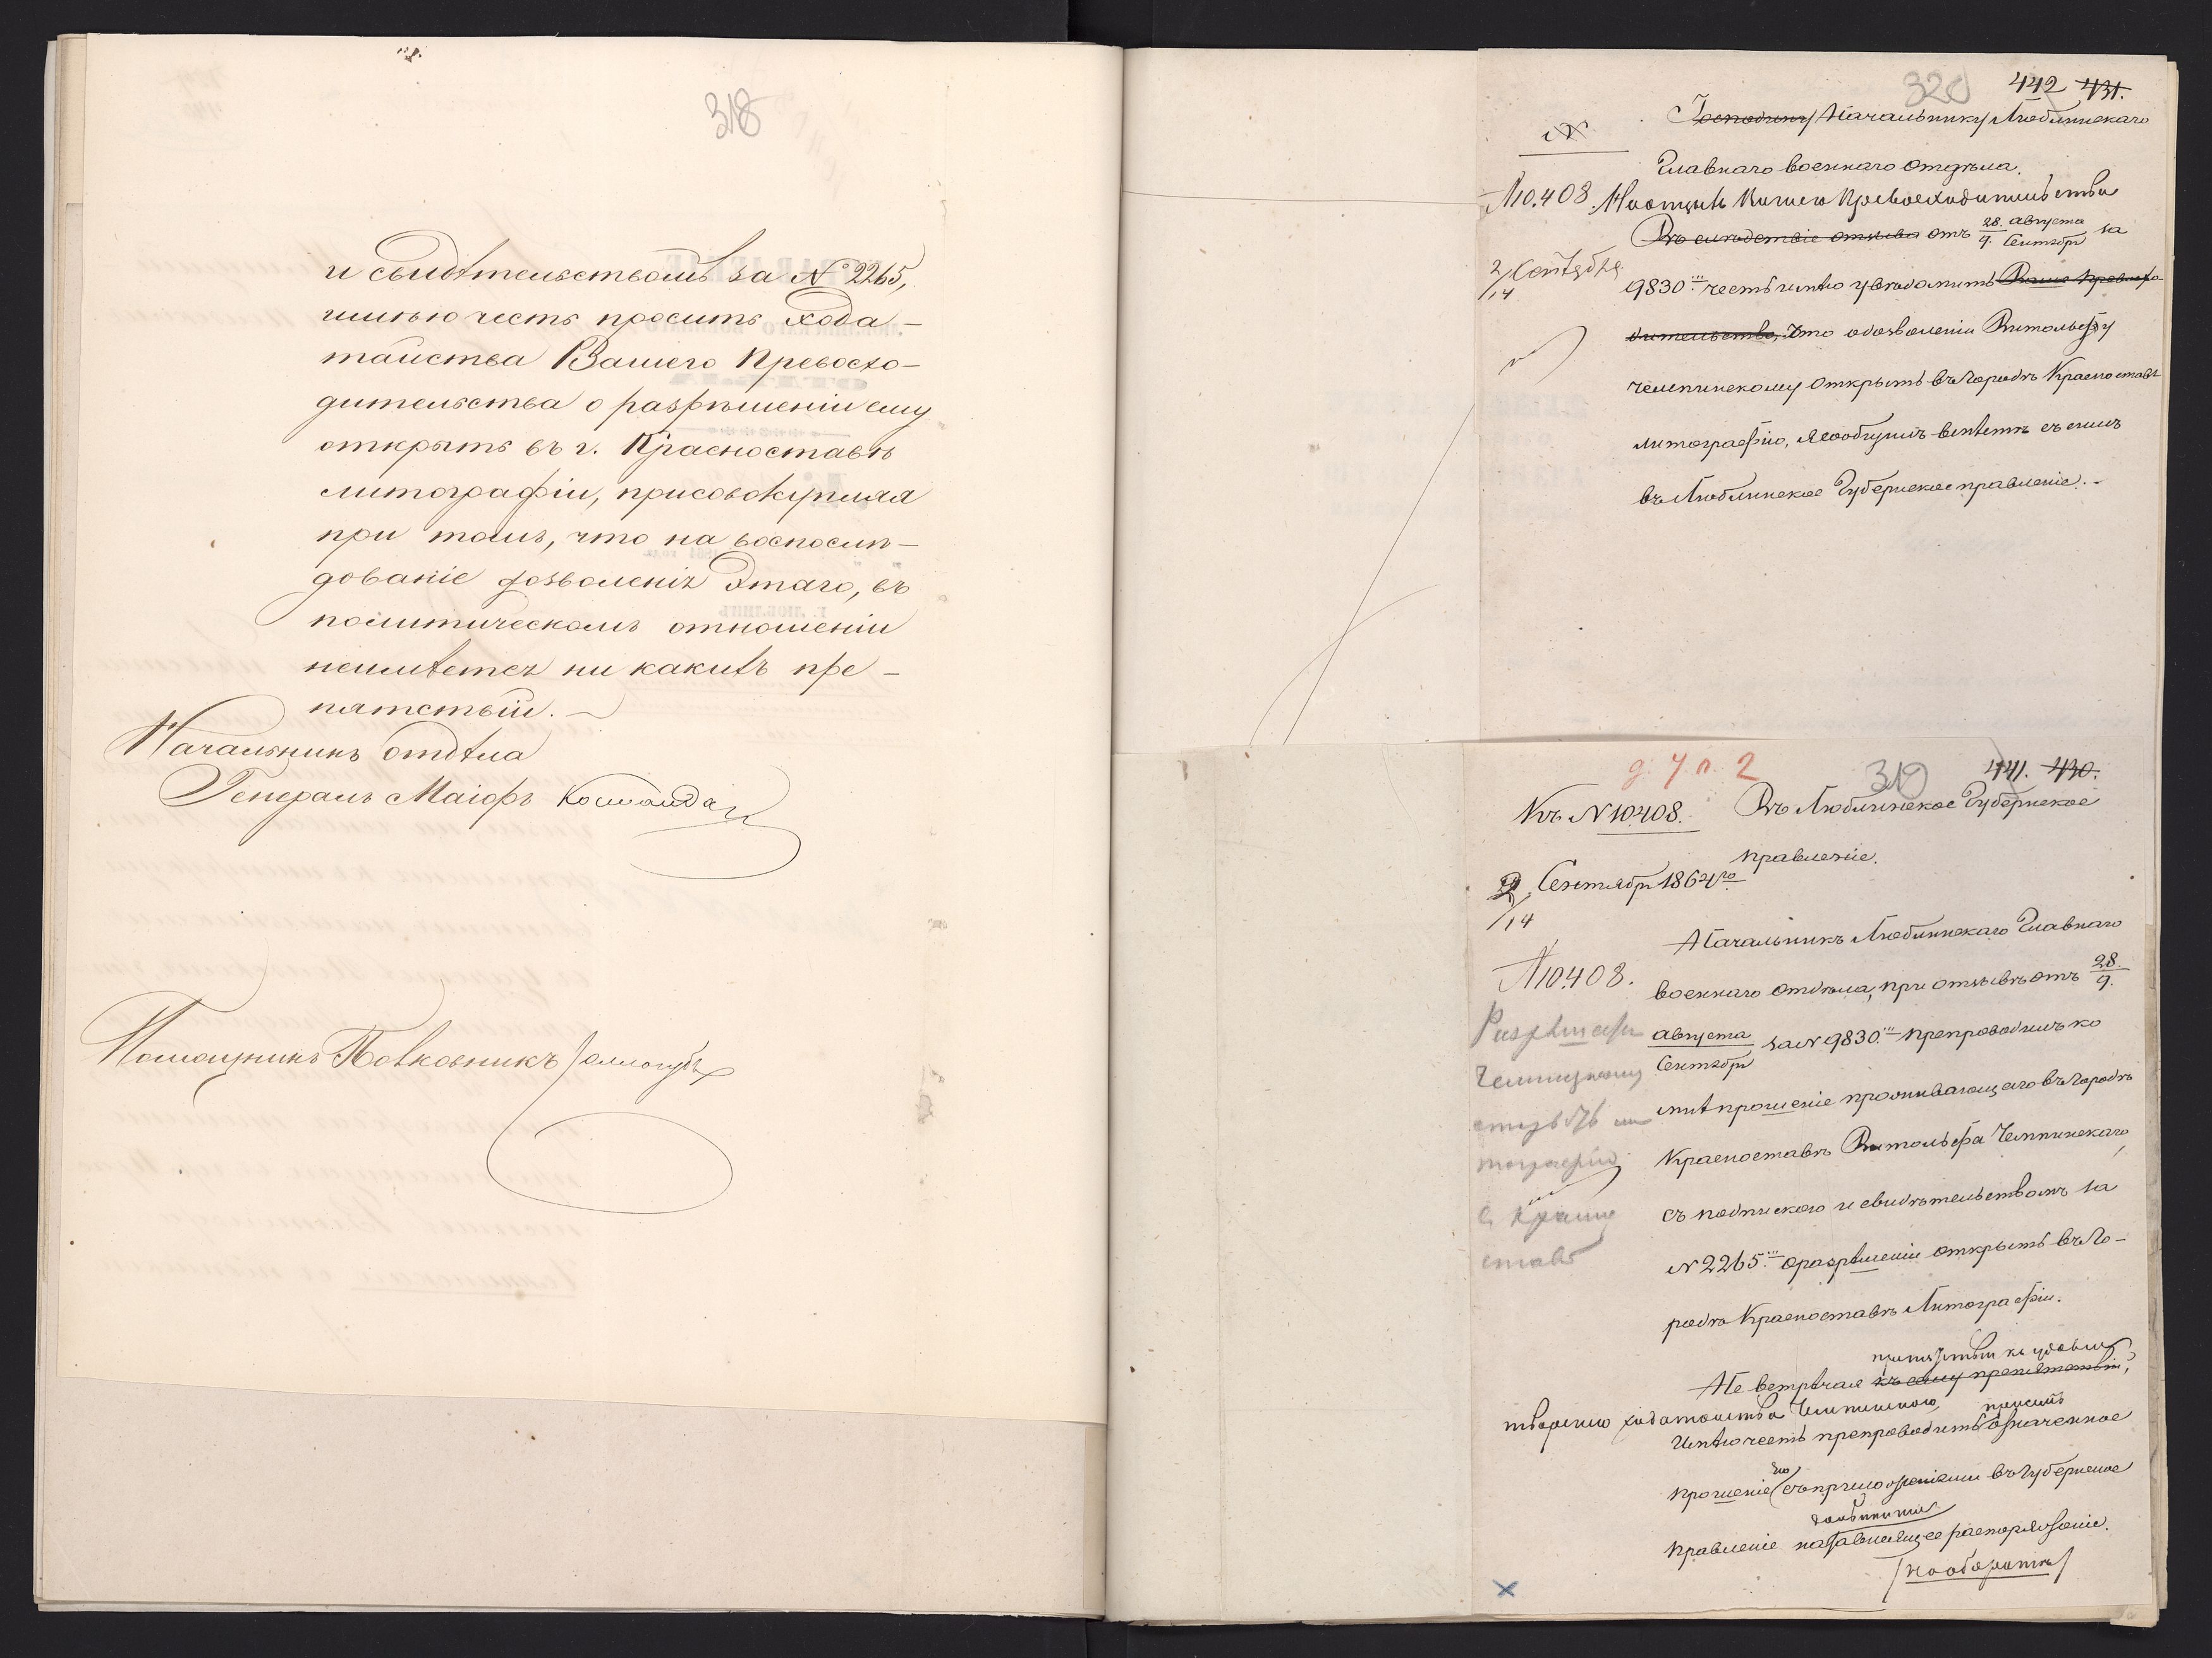 318
и свидѣтельствомъ за № 2265,
имѣю честь просить хода-
тайства Вашего Превосхо-
дительства о разрѣшеніи ему
открыть въ г. Красноставѣ
литографіи, присовокупляя
при томъ, что на воспослѣ-
дованіе дозволенія этаго, въ
политическомъ отношеніи
неимѣется ни какихъ пре-
пятствій.
Начальникъ отдѣла
Генералъ Маіоръ
Помощникъ Полковникъ
320 442 431.
Господину Начальнику Люблинскаго
№
Главнаго военнаго отдѣла.
№ 10.408.
На отзывъ Вашего Превосходительства
Въ слѣдствіе отзыва отъ 28/9 Августа/Сентября за
2/14 Сентября
9830 честь имѣю увѣдомить Ваше Превосхо-
дительство, что о дозволеніи Витольфу
Чемпинскому открыть въ городѣ Красноставѣ
литографію, я сообщилъ вмѣстѣ съ симъ
въ Люблинское Губернское правленіе.
д. 7 п. 2
319 441. 430.
Къ № 10408.
Въ Люблинское Губернское
Правленіе.
2/14 Сентября 1864 го
Начальникъ Люблинскаго Главнаго
№ 10.408.
военнаго отдѣла, при отзывѣ отъ 28/9
Августа/Сентября за № 9830 препроводилъ ко
мнѣ прошеніе проживающаго въ городѣ
Красноставѣ Витольфа Чемпинскаго
съ подпискою и свидѣтельствомъ за
№ 2265 о разрѣшеніи открыть въ го-
родѣ Красноставѣ Литографіи.
Чемпинскому
литографію
въ Красно
ставѣ
препятствій къ удовле
Не встрѣчая къ сему препятствій,
творенію ходатайства Чемпинскаго,
Имѣю честь препроводить означенное
прошеніе съ приложеніями въ Губернское
Правленіе на зависящее распоряженіе.
/на оборотѣ/